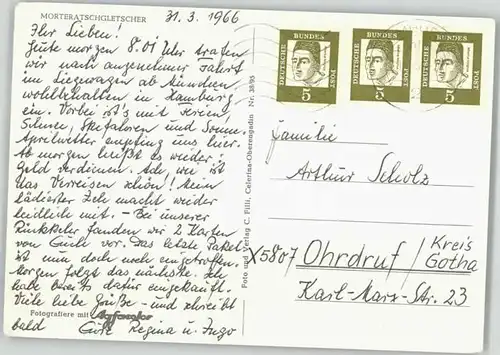 MORTERATSCHGLETSCHER
31. 3. 1966
Ihr Lieben!
Heute morgen 8.01 Uhr trafen
wir nach angenehmer Fahrt
im Liegewagen ab München
wohlbehalten in Hamburg
ein. Vorbei ist's mit Ferien,
Schnee, Skifahren und Sonne
Aprilwetter empfing uns hier.
Ab morgen heißt es wieder:
Geld verdienen. Ach, wo ist
das Verreisen schön! Mein
lädierter Zeh macht wieder
leidlich mit. - Bei unserer
Rückkehr fanden wir 2 Karten
von Euch vor. Das letzte Paket
ist nun doch noch eingetroffen.
Morgen folgt das nächste. Ich
habe bereits dafür eingekauft.
Viele liebe Grüße - und schreibt
bald Eure Regina u. Ingo
Fotografiere mit Agfacolor
Foto und Verlag C. Filli, Celerina-Oberengadin Nr. 3895
DEUTSCHE BUNDES POST 5
DEUTSCHE BUNDES POST 5
DEUTSCHE BUNDES POST 5
Familie
Arthur Scholz
X5807 Ohrdruf / Kreis
Gotha
Karl-Marx-Str. 23